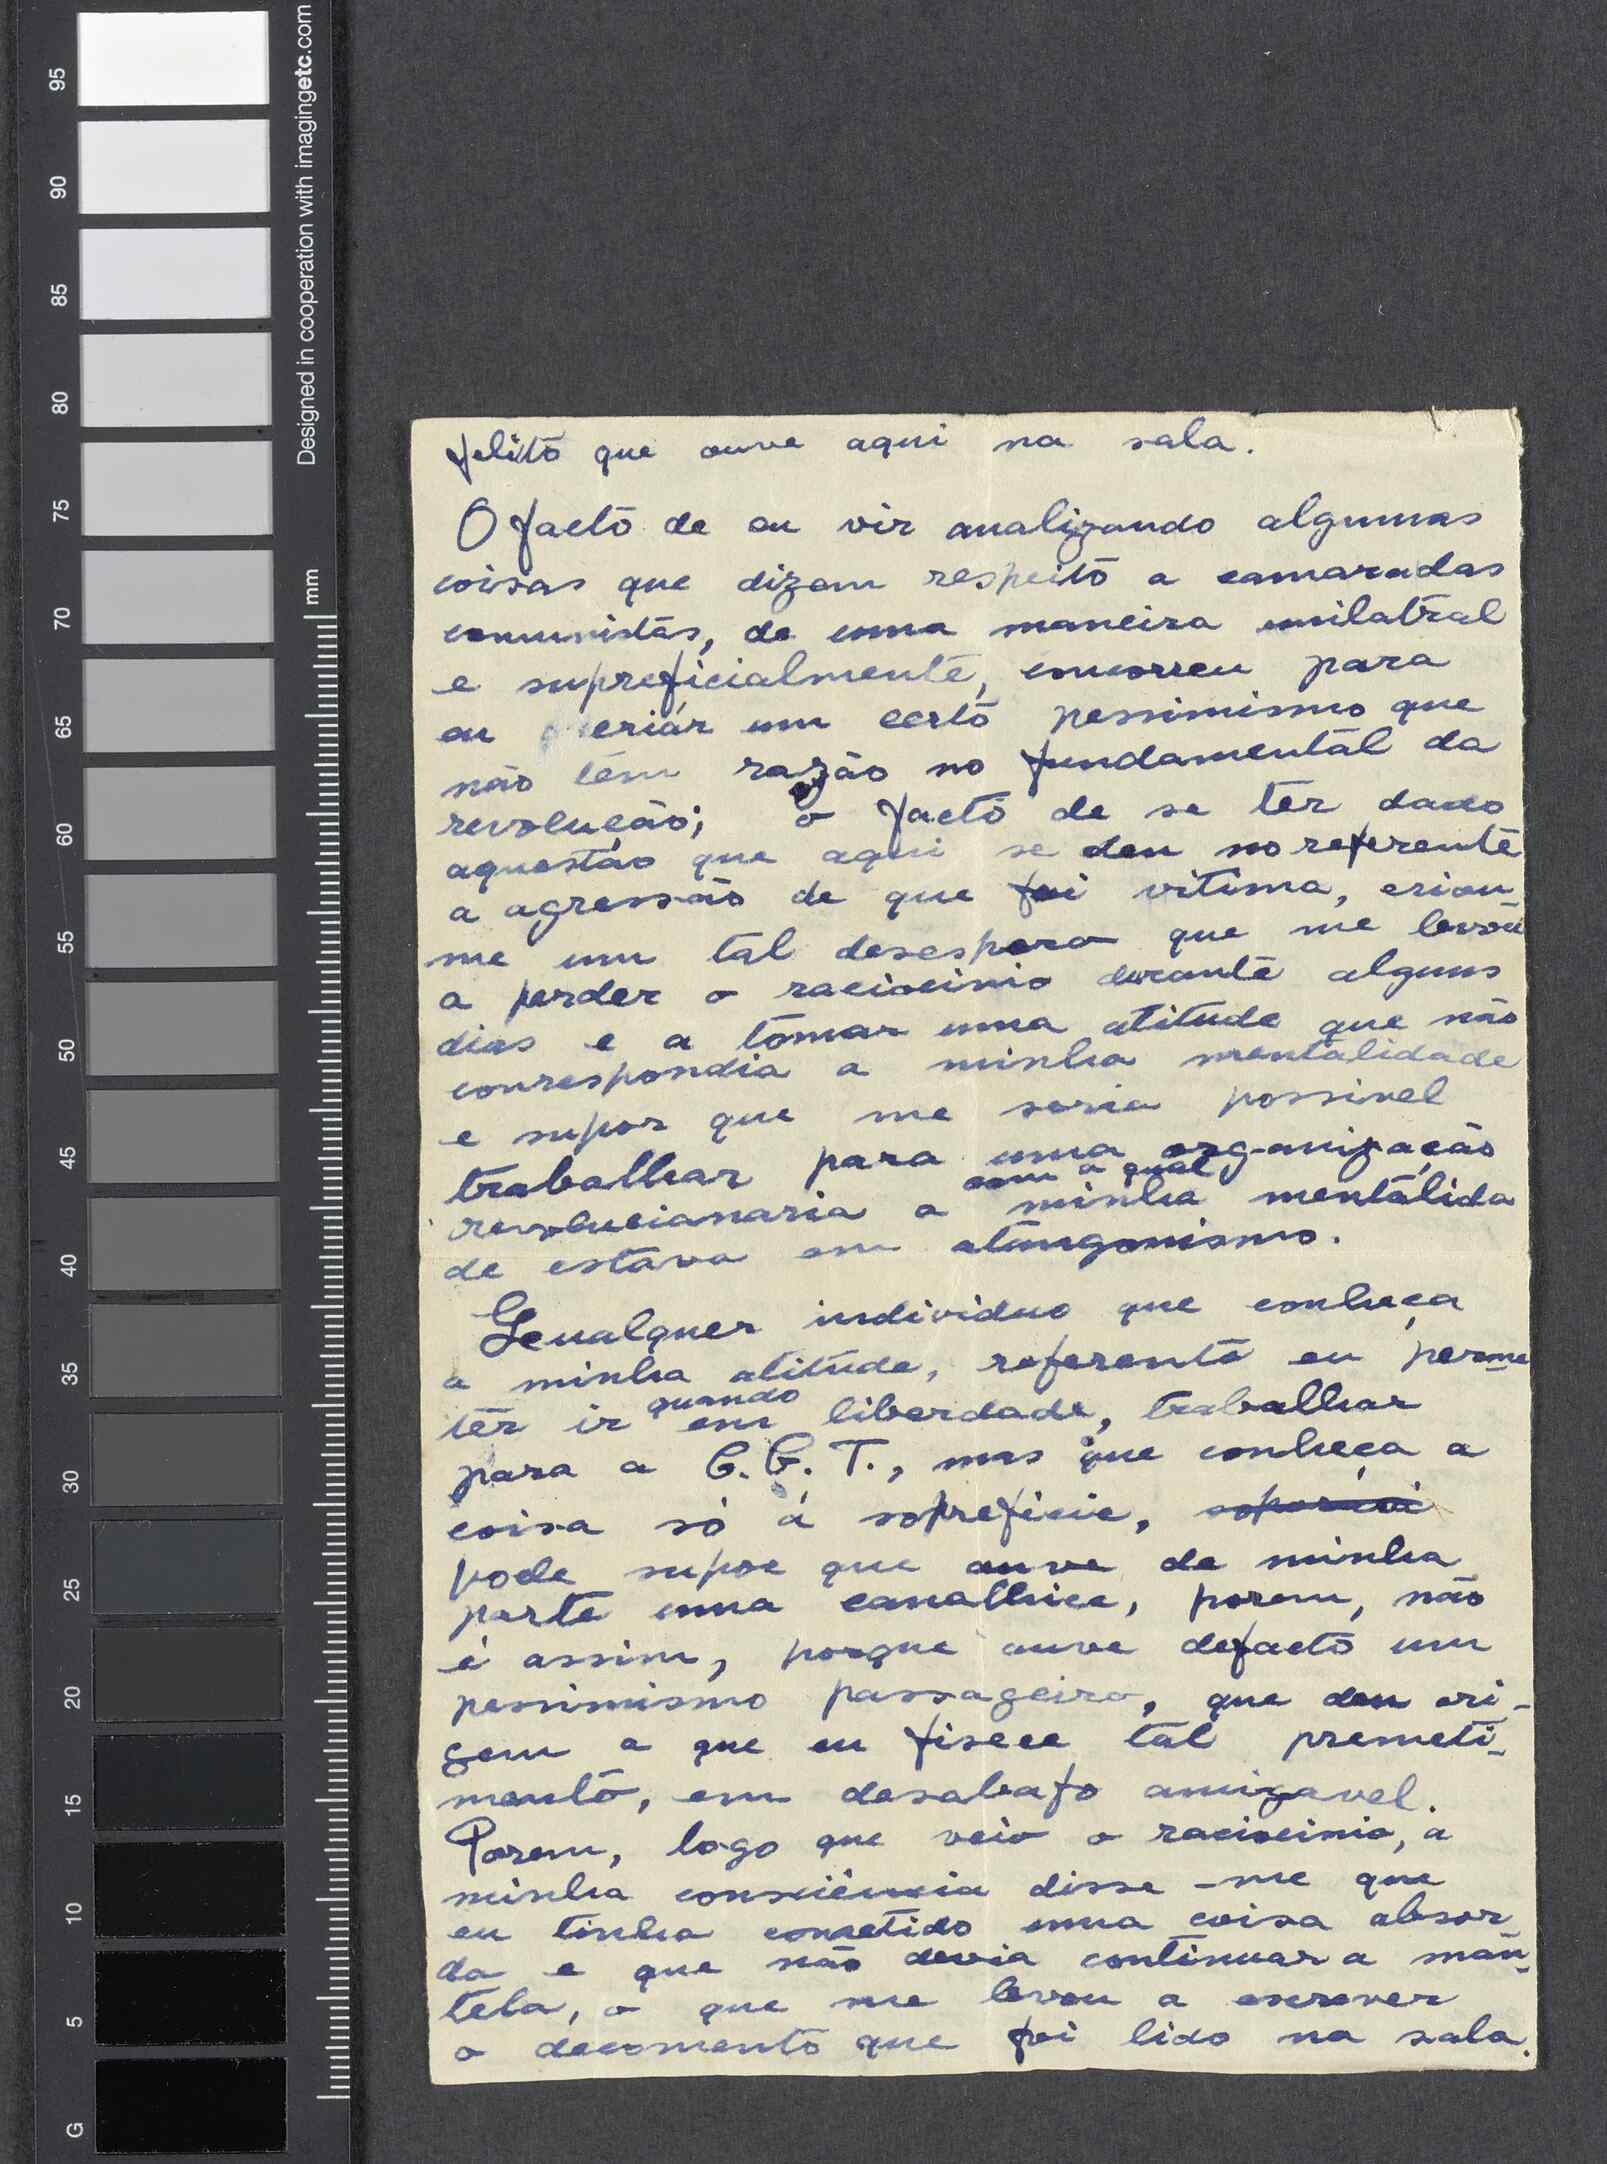 felito que ouve aqui na sala.
O facto de eu vir analizando algumas
coisas que dizem respeito a camaradas
comunistas, de uma maneira unilatral
e supreficialmente, concorreu para
eu criár um certo pessimismo que
não têm razão no fundamental da
revolução; o facto de se ter dado
aquestão que aqui se deu no referente
a agressão de que foi vitima, criou-
me um tal desespero que me levou
a perder o raciocinio durante alguns
dias e a tomar uma atitude que não
correspondia a minha mentalidade
e supor que me seria possivel
trabalhar para uma organização
com a qual
revolucianaria a minha mentalida
de estava em atangonismo.
Qualquer individuo que conheça
a minha atitude, referente eu perme-
quando
ter ir em liberdade, trabalhar
para a C.G.T., mas que conheça a
coisa só á sopreficie,
pode supor que ouve de minha
parte uma canalhice, porem, não
é assim, porque ouve defacto um
pessimismo passageiro, que deu ori-
gem a que eu fisece tal premeti-
mento, em desabafo amigavel.
Porem, logo que veio o raciocinio, a
minha consciência disse-me que
eu tinha cometido uma coisa absor
da e que não devia continuar a man-
tela, o que me levou a escrever
o decomento que foi lido na sala.
95
90
85
80
75
70
65
60
55
50
45
40
35
30
25
20
15
10
5
G
mm
Designed in cooperation with imagingetc.com